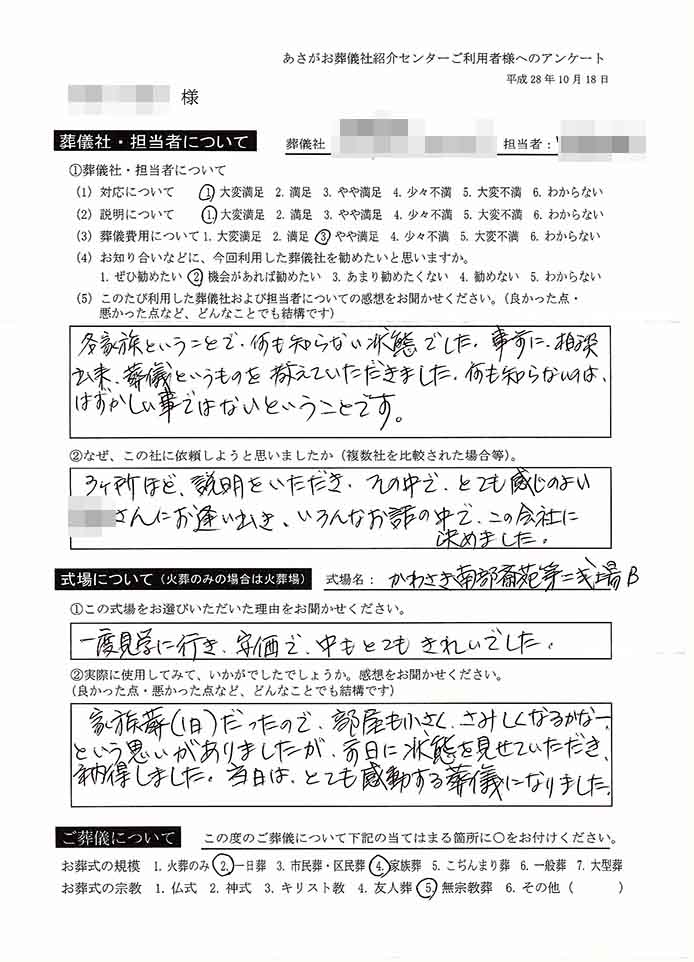 あさがお葬儀社紹介センターご利用者様へのアンケート
平成28年10月18日
様
葬儀社・担当者について 葬儀社 担当者：
①葬儀社・担当者について
(1) 対応について 1. 大変満足 2. 満足 3. やや満足 4. 少々不満 5. 大変不満 6. わからない
(2) 説明について 1. 大変満足 2. 満足 3. やや満足 4. 少々不満 5. 大変不満 6. わからない
(3) 葬儀費用について 1. 大変満足 2. 満足 3 やや満足 4. 少々不満 5. 大変不満 6. わからない
(4) お知り合いなどに、今回利用した葬儀社を勧めたいと思いますか。
1. ぜひ勧めたい 2 機会があれば勧めたい 3. あまり勧めたくない 4. 勧めない 5. わからない
(5) このたび利用した葬儀社および担当者についての感想をお聞かせください。（良かった点・
悪かった点など、どんなことでも結構です）
家族ということで、何も知らない状態でした。事前に、相談
出来、葬儀というものを教えていただきました。何も知らないのは、
はずかしい事ではないということです。
②なぜ、この社に依頼しようと思いましたか（複数社を比較された場合等）。
3ヶ所ほど、説明をいただき、その中で、とても感じのよい
さんにお逢い出き、いろんなお話の中で、この会社に
決めました。
式場について（火葬のみの場合は火葬場） 式場名： かわさき南部斎苑第二式場B
①この式場をお選びいただいた理由をお聞かせください。
一度見学に行き、安価で、中もとてもきれいでした。
②実際に使用してみて、いかがでしたでしょうか。感想をお聞かせください。
（良かった点・悪かった点など、どんなことでも結構です）
家族葬(1日)だったので、部屋も小さく、さみしくなるかなー、
という思いがありましたが、前日に状態を見せていただき、
納得しました。当日は、とても感動する葬儀になりました。
ご葬儀について この度のご葬儀について下記の当てはまる箇所に○をお付けください。
お葬式の規模 1. 火葬のみ 2. 一日葬 3. 市民葬・区民葬 4. 家族葬 5. こぢんまり葬 6. 一般葬 7. 大型葬
お葬式の宗教 1. 仏式 2. 神式 3. キリスト教 4. 友人葬 5 無宗教葬 6. その他（ ）